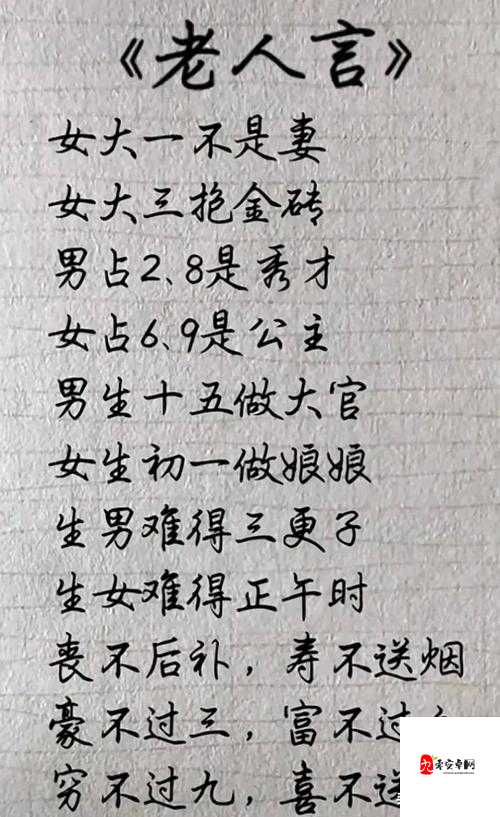 《老人言》
女大一不是妻
女大三抱金砖
男占2、8是秀才
女占6、9是公主
男生十五做大官
女生初一做娘娘
生男难得三更子
生女难得正午时
丧不后补，寿不送烟
豪不过三，富不过
穷不过九，喜不送
安卓网